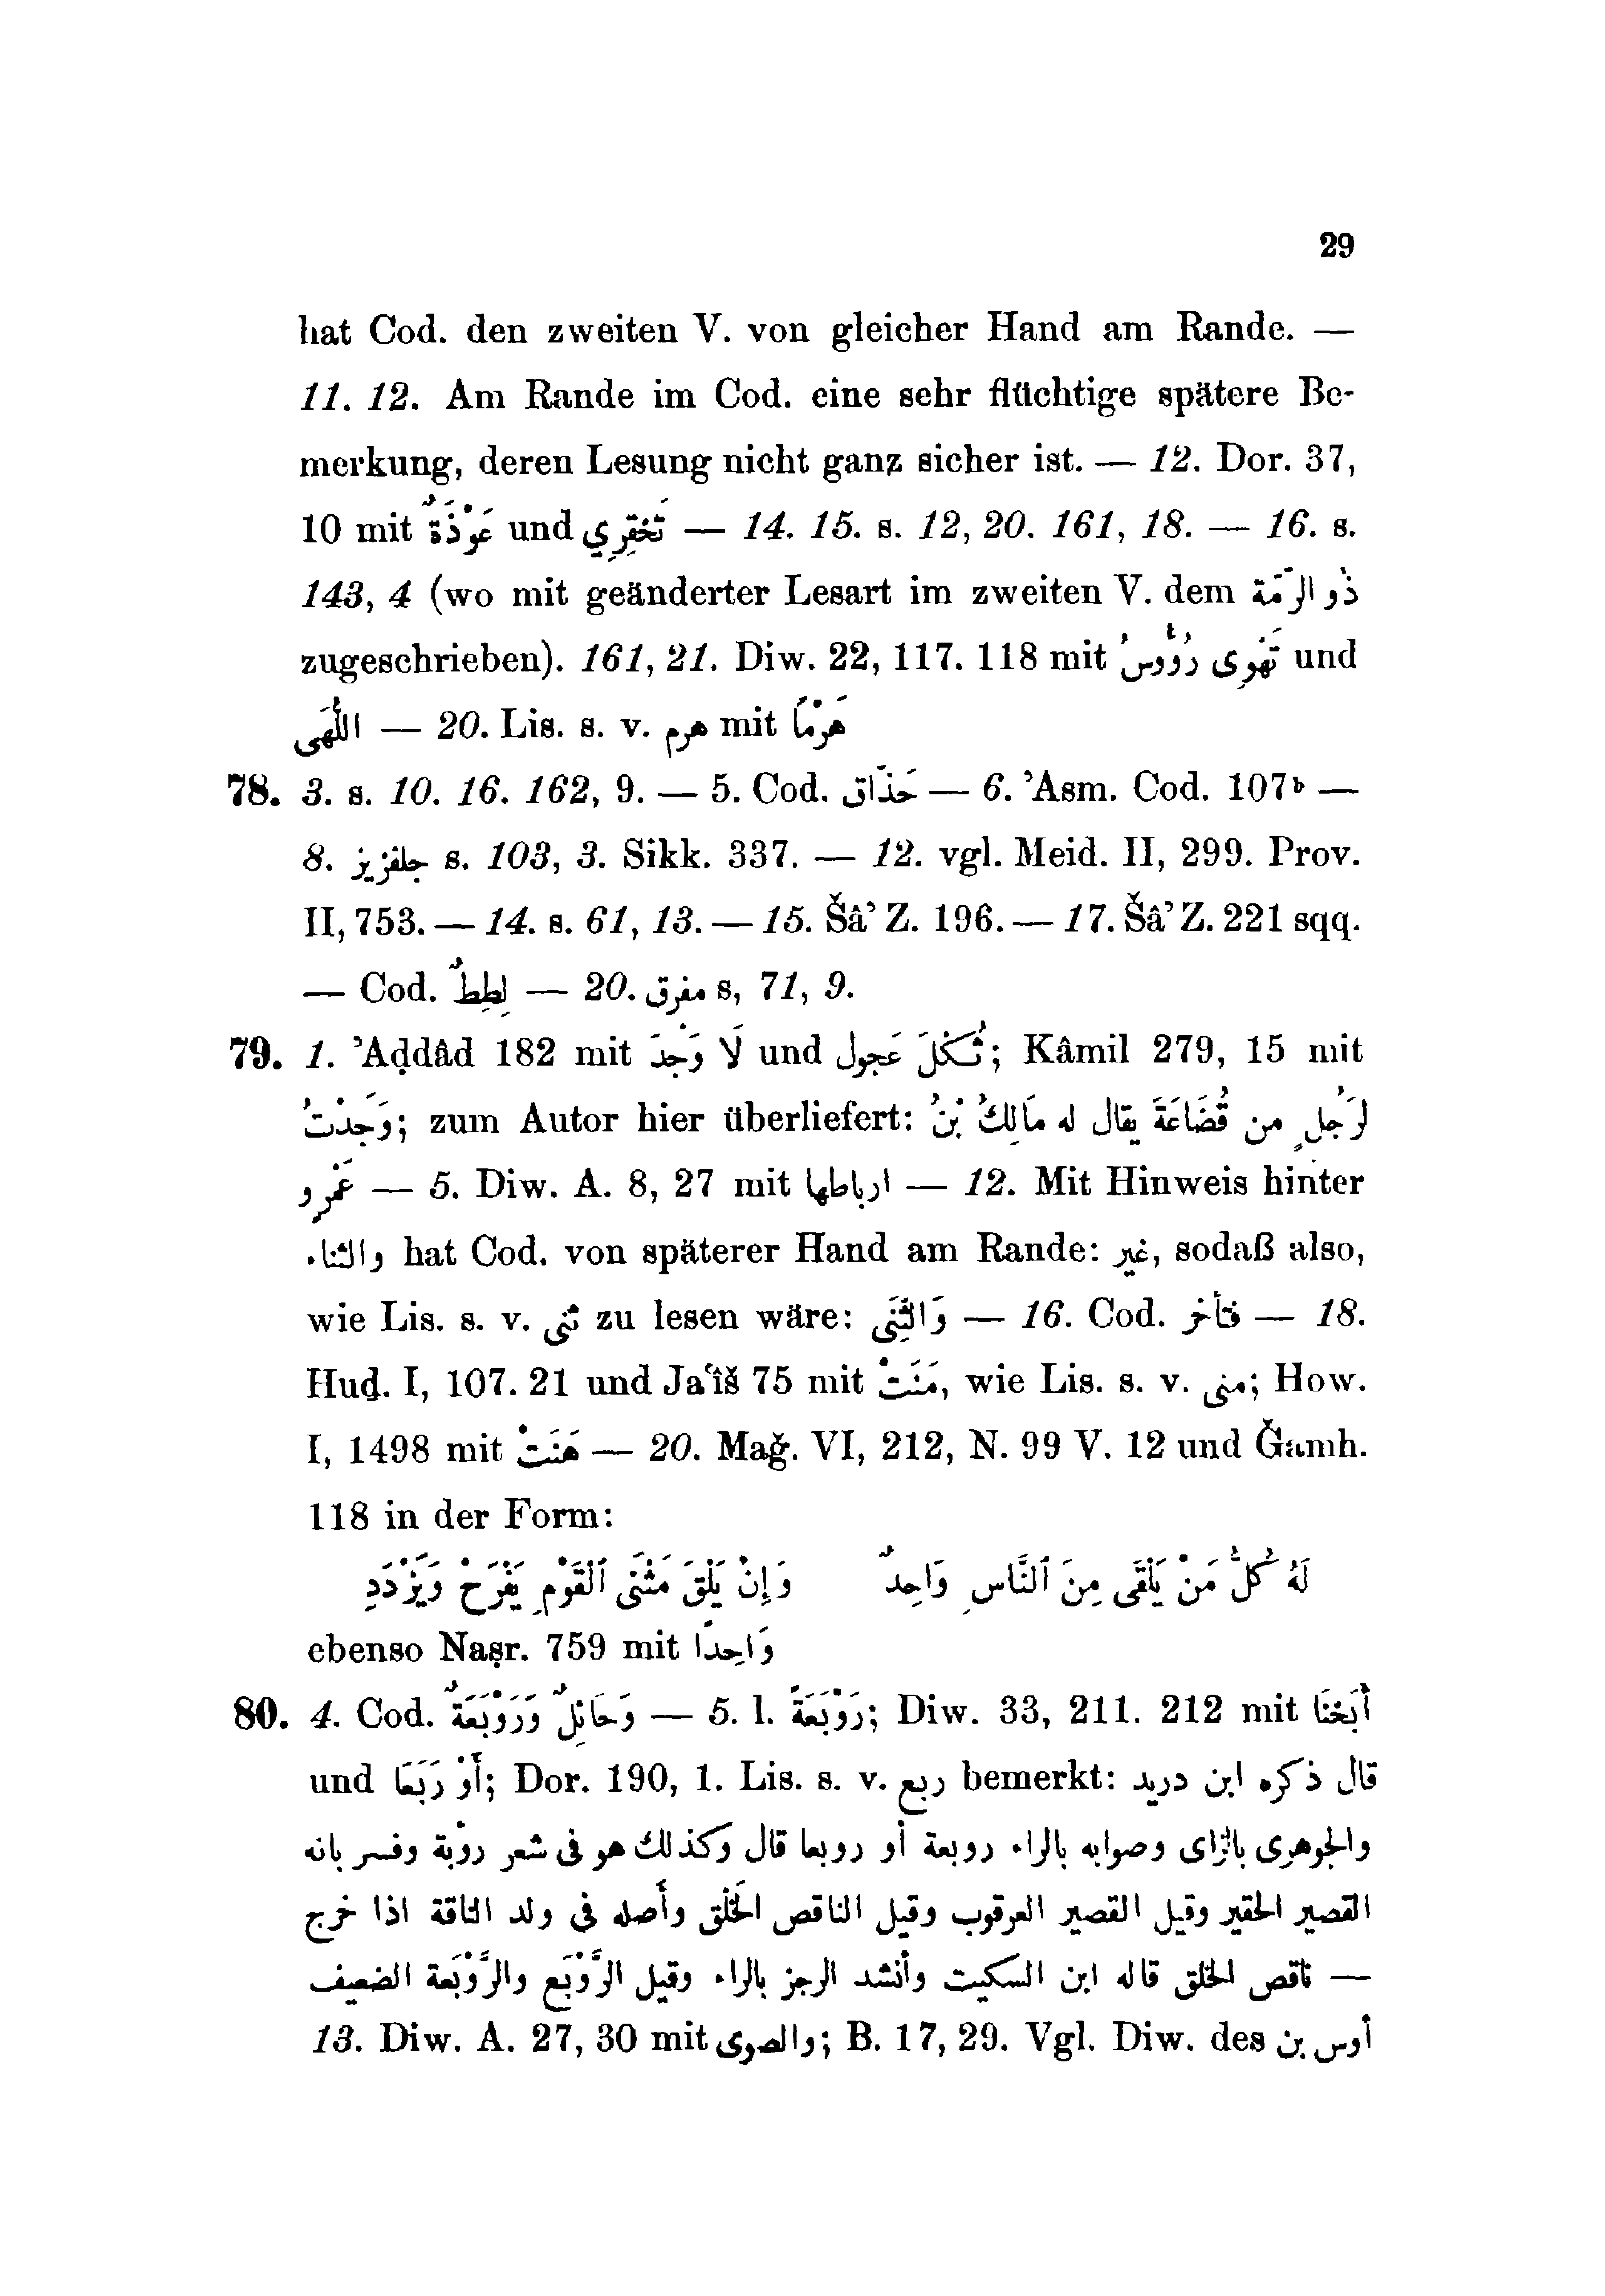 29
hat Cod. den zweiten V. von gleicher Hand am Rande. —
11. 12. Am Rande im Cod. eine sehr flüchtige spätere Be-
merkung, deren Lesung nicht ganz sicher ist. — 12. Dor. 37,
10 mit عَوْذَةٌ und تَخْفِرِي — 14. 15. s. 12, 20. 161, 18. — 16. s.
143, 4 (wo mit geänderter Lesart im zweiten V. dem ذُو الرّمَّة
zugeschrieben). 161, 21. Diw. 22, 117. 118 mit تَهْوِى رُؤُوسُ und
اللُّهَى — 20. Lis. s. v. هرم mit هَرْمًا
78. 3. s. 10. 16. 162, 9. — 5. Cod. حَذّاق — 6. ’Asm. Cod. 107b —
8. جلفزيز s. 103, 3. Sikk. 337. — 12. vgl. Meid. II, 299. Prov.
II, 753. — 14. s. 61, 13. — 15. Šâ’ Z. 196. — 17. Šâ’ Z. 221 sqq.
— Cod. لِطِطٌ — 20. مفرق s, 71, 9.
79. 1. ’Aḍdâd 182 mit لَا وَجْدَ und ثُكْلَ عَجول; Kâmil 279, 15 mit
وَجَدْتُ; zum Autor hier überliefert: لرَجُلٍ من قُضَاعَةَ يقال له مَالِكُ بْنُ
عَمْرٍو — 5. Diw. A. 8, 27 mit ارباطها — 12. Mit Hinweis hinter
والثناء hat Cod. von späterer Hand am Rande: غير, sodaß also,
wie Lis. s. v. ثنى zu lesen wäre: وَالثِّنَى — 16. Cod. فتأخر — 18.
Huḏ. I, 107. 21 und Ja‘îš 75 mit مَنَتْ, wie Lis. s. v. منى; How.
I, 1498 mit هَنَتْ — 20. Maǧ. VI, 212, N. 99 V. 12 und Ǧamh.
118 in der Form:
لَهُ كُلُّ مَنْ يَلْقَى مِنَ ٱلنَّاسِ وَاحِدٌ وَإِنْ يَلْقَ مَثْنَى ٱلقَوْمِ يَفْرَحْ وَيَزْدَدِ
ebenso Naṣr. 759 mit وَاحِدًا
80. 4. Cod. وَحَائِلٌ وَرَوْبَعَةٌ — 5. l. رَوْبَعَةً; Diw. 33, 211. 212 mit أَبَخْنَا
und أَوْ رَبَعَا; Dor. 190, 1. Lis. s. v. ربع bemerkt: قال ذكره ابن دريد
والجوهرى بالزاى وصوابه بالراء روبعة أو روبعا قال وكذلك هو فى شعر رؤبة وفسر بانه
القصير الحقير وقيل القصير العرقوب وقيل الناقص الخَلْق وأصله فى ولد الناقة اذا خرج
ناقص الخلق قاله ابن السكيت وأنشد الرجز بالراء وقيل الرَّوْبَع والرَّوْبَعة الضعيف —
13. Diw. A. 27, 30 mit والصوى; B. 17, 29. Vgl. Diw. des أوس بن